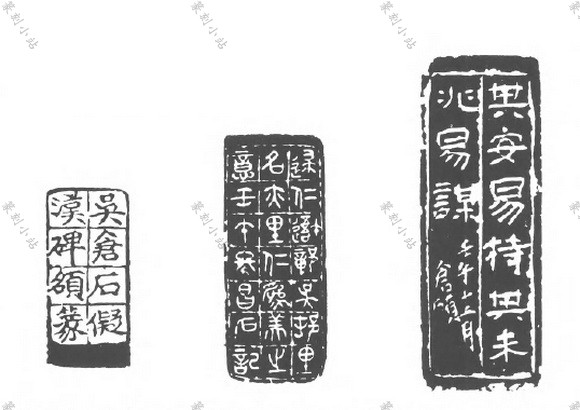 其安易持其未
兆易謀
壬午十二月
倉碩
仁
名亦里仁為美之
意壬午冬昌石記
吳倉石儗
漢碑額篆
篆刻小站
篆刻小站
篆刻小站
篆刻小站
篆刻小站
篆刻小站